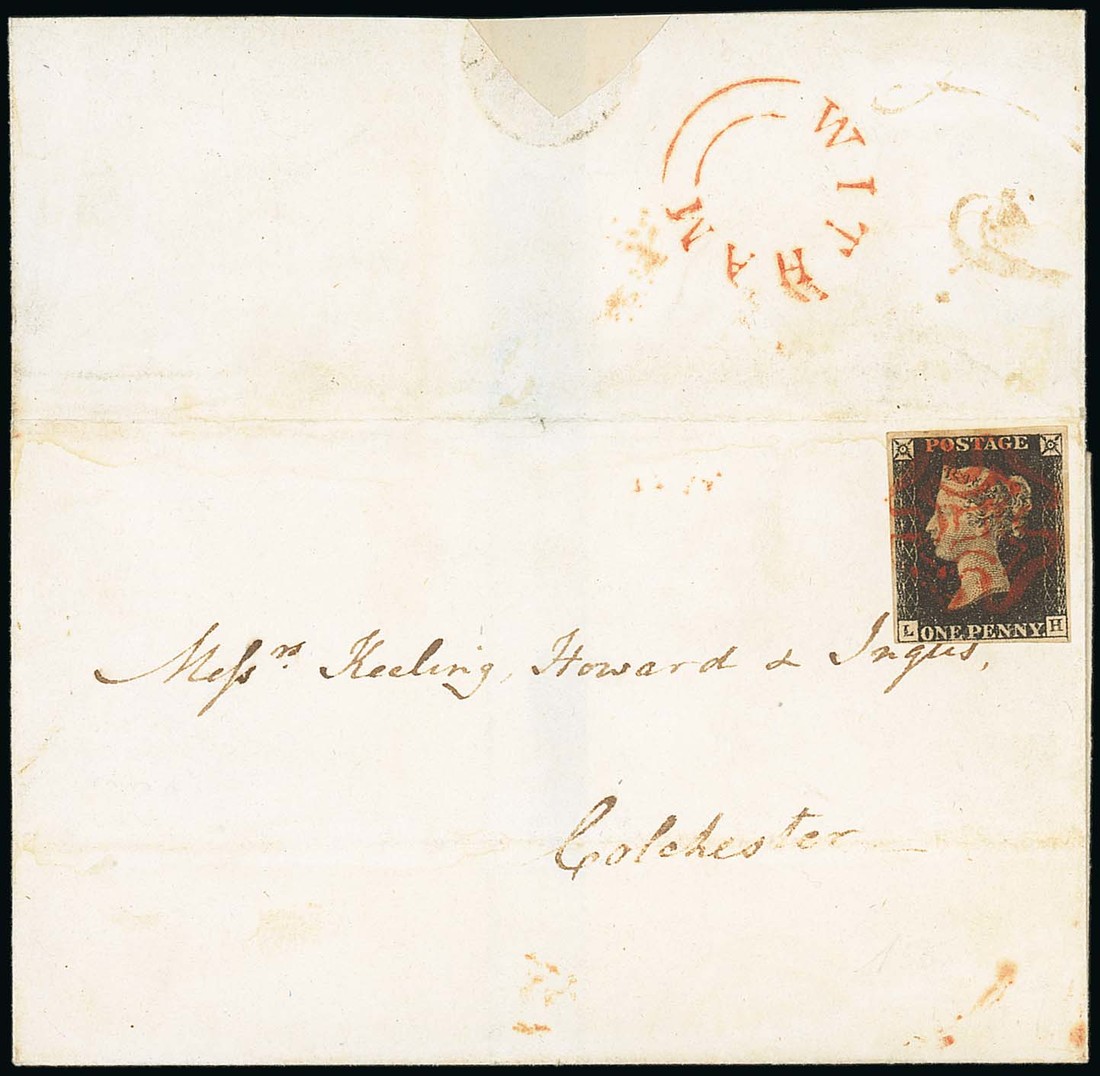 WITHAM
POSTAGE
L ONE PENNY. H
Messrs Keeling, Howard & Ingus,
Colchester